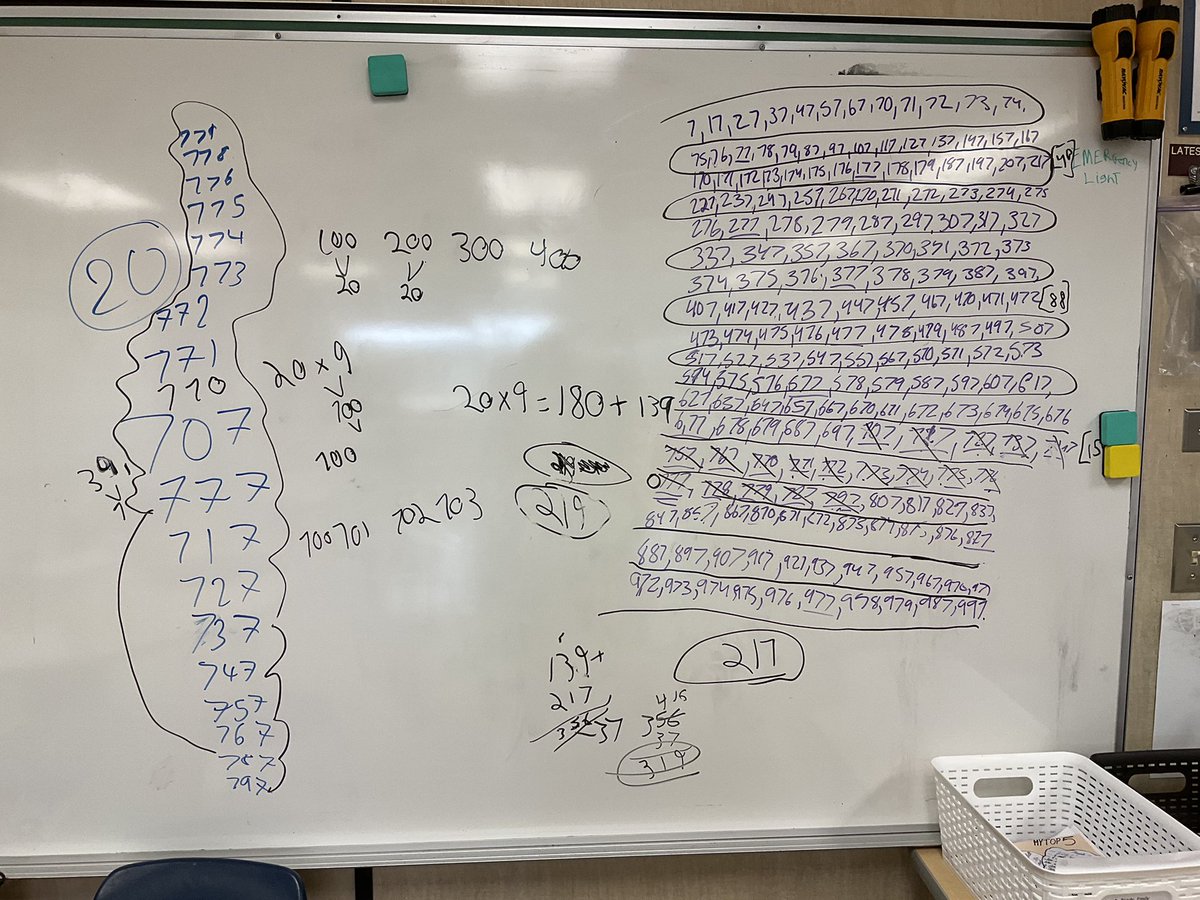 778
776
775
774
773
772
771
770
707
777
717
727
737
747
757
767
787
797
20
39
100 200 300 400
20 20
20 x 9
100
100 701 702 703
20x9=180+139
219
7,17,27,37,47,57,67,70,71,72,73,74,
75,76,77,78,79,87,97,107,117,127,137,147,157,167
170,171,172,173,174,175,176,177,178,179,187,197,207,217
227,237,247,257,267,270,271,272,273,274,275
276,277,278,279,287,297,307,317,327
337,347,357,367,370,371,372,373
374,375,376,377,378,379,387,397,
407,417,427,437,447,457,467,470,471,472[88]
473,474,475,476,477,478,479,487,497,507
517,527,537,547,557,567,570,571,572,573
574,575,576,577,578,579,587,597,607,617,
627,637,647,657,667,670,671,672,673,674,675,676
677,678,679,687,697,707,717,727,737,
757,767,770,771,772,773,774,775,776
777,778,779,787,797,807,817,827,837,
847,857,867,870,871,872,873,874,875,876,877
887,897,907,917,927,937,947,957,967,970,971
972,973,974,975,976,977,978,979,987,997.
EMERgency
Light
217
139+
217
356 37
356
37
319
LATES
MY TOP 5